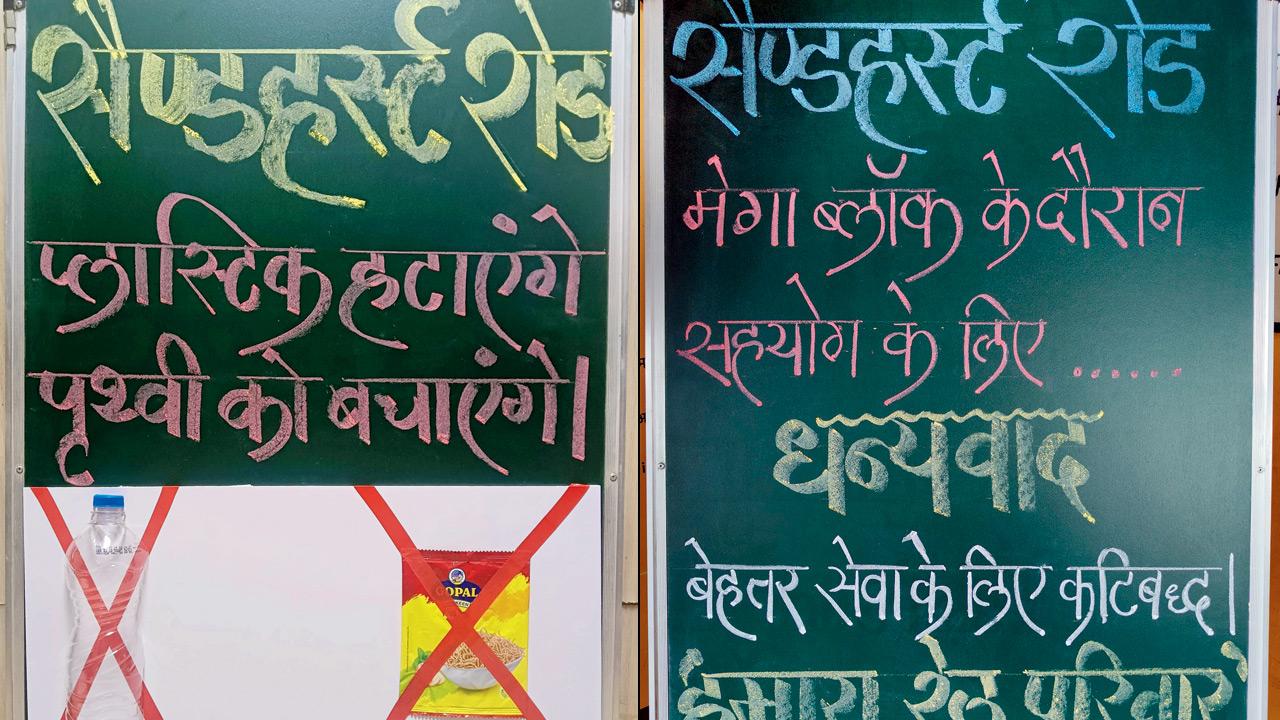 सैण्डहर्स्ट रोड
प्लास्टिक हटाएंगे
पृथ्वी को बचाएंगे।
GOPAL
सैण्डहर्स्ट रोड
मेगा ब्लॉक के दौरान
सहयोग के लिए ......
धन्यवाद
बेहतर सेवा के लिए कटिबध्द।
हमारा रेल परिवार